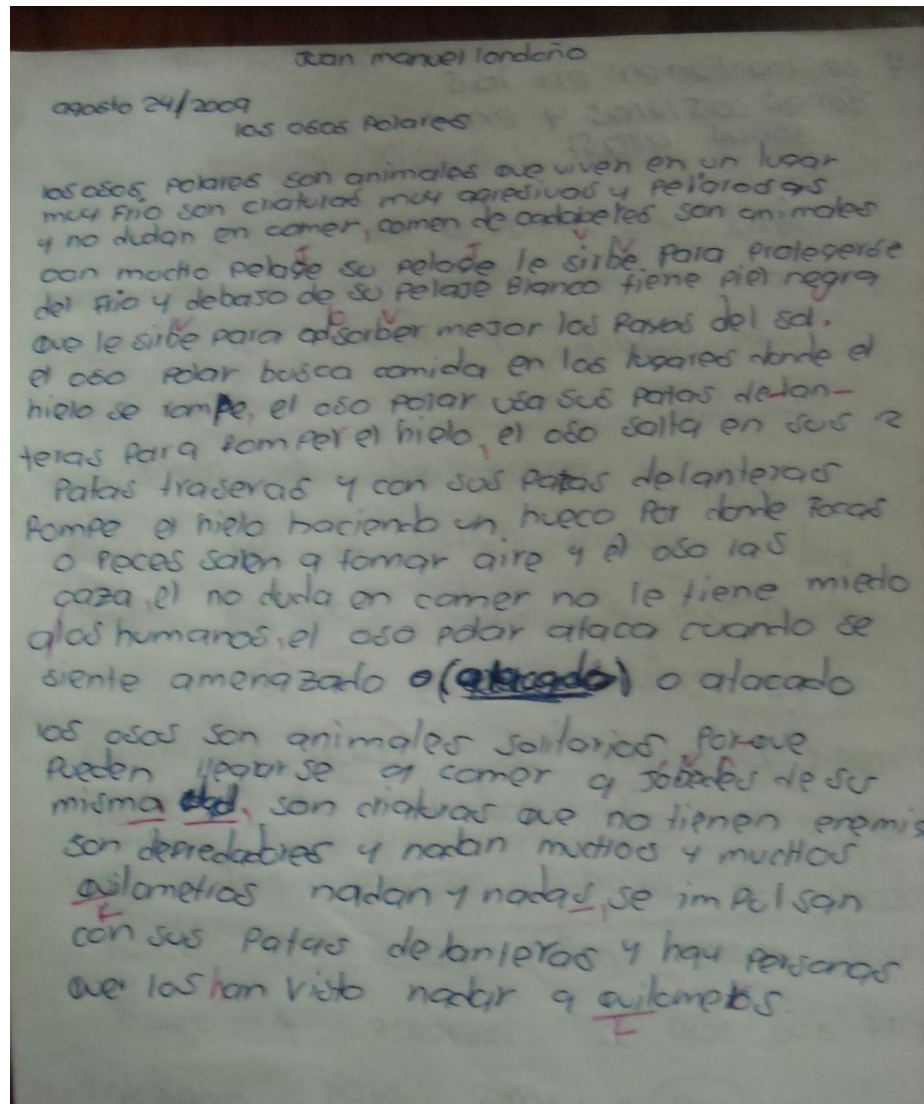 Juan manuel londoño
agosto 24/2009
los osos Polares
los osos Polares son animales que viven en un lugar
muy Frio son criaturas muy agresivas y Peligrosas
y no dudan en comer, comen de cadaberes son animales
con mucho pelage su pelage le sirbe Para Protegerse
del Frio y debajo de su Pelaje Blanco tiene piel negra
que le sirbe para adsorber mejor los Rayos del sol.
el oso Polar busca comida en los lugares donde el
hielo se rompe, el oso Polar usa sus patas delan-
teras Para romper el hielo, el oso salta en sus 2
Patas traseras y con sus patas delanteras
Rompe el hielo haciendo un hueco Por donde Focas
o Peces salen a tomar aire y el oso las
caza, el no duda en comer no le tiene miedo
a los humanos, el oso polar ataca cuando se
siente amenazado o (atacado) o atacado
los osos son animales solitarios, Porque
Pueden llegarse a comer a de su
misma, son criaturas que no tienen enemis
son depredadores y nadan muchos y muchos
quilometros nadan y nadas, se impulsan
con sus Patas delanteras y hay Personas
que los han visto nadar a quilometros